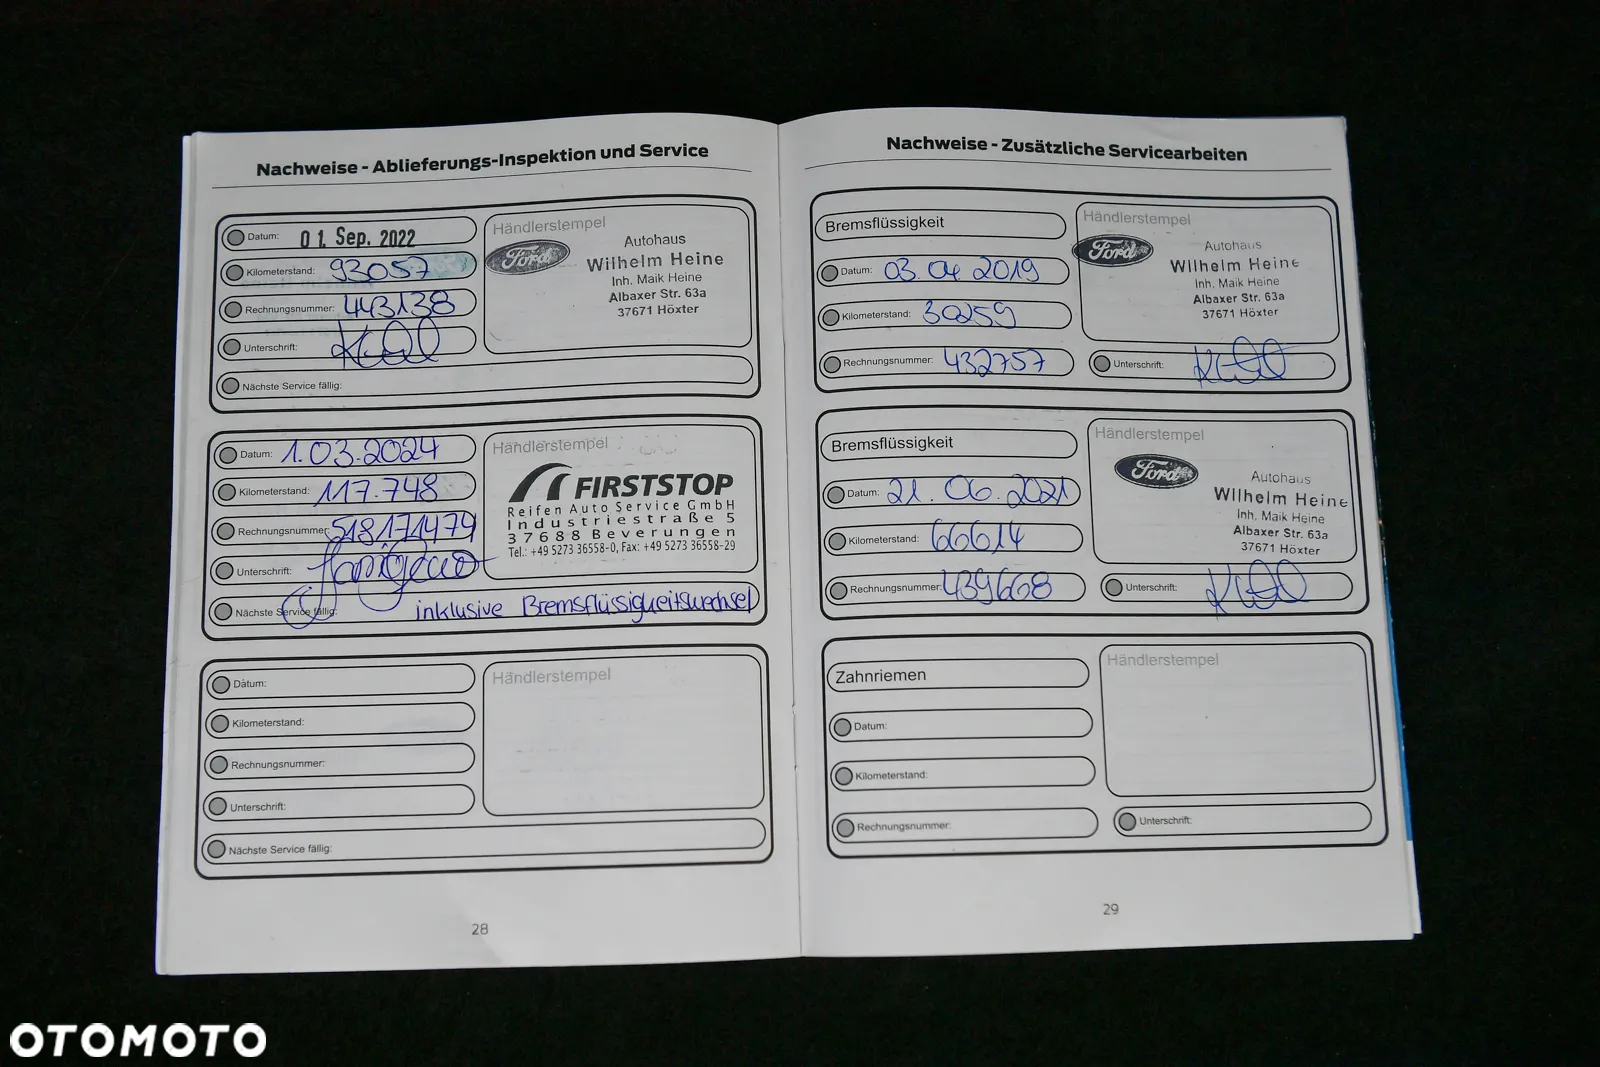 Nachweise - Ablieferungs-Inspektion und Service
Datum: 01. Sep. 2022
Kilometerstand: 93057
Rechnungsnummer: 443138
Unterschrift:
Nächste Service fällig:
Händlerstempel
Ford
Autohaus
Wilhelm Heine
Inh. Maik Heine
Albaxer Str. 63a
37671 Höxter
Datum: 1.03.2024
Kilometerstand: 117.748
Rechnungsnummer: 518171474
Unterschrift:
Nächste Service fällig: inklusive Bremsflüssigkeitswechsel
Händlerstempel
FIRSTSTOP
Reifen Auto Service GmbH
Industriestraße 5
37688 Beverungen
Tel.: +49 5273 36558-0, Fax: +49 5273 36558-29
Datum:
Kilometerstand:
Rechnungsnummer:
Unterschrift:
Nächste Service fällig:
Händlerstempel
28
Nachweise - Zusätzliche Servicearbeiten
Bremsflüssigkeit
Datum: 03.04 2019
Kilometerstand: 30259
Rechnungsnummer: 432757
Händlerstempel
Ford
Autohaus
Wilhelm Heine
Inh. Maik Heine
Albaxer Str. 63a
37671 Höxter
Unterschrift:
Bremsflüssigkeit
Datum: 21.06.2021
Kilometerstand: 66614
Rechnungsnummer: 439668
Händlerstempel
Ford
Autohaus
Wilhelm Heine
Inh. Maik Heine
Albaxer Str. 63a
37671 Höxter
Unterschrift:
Zahnriemen
Datum:
Kilometerstand:
Rechnungsnummer:
Händlerstempel
Unterschrift:
29
OTOMOTO